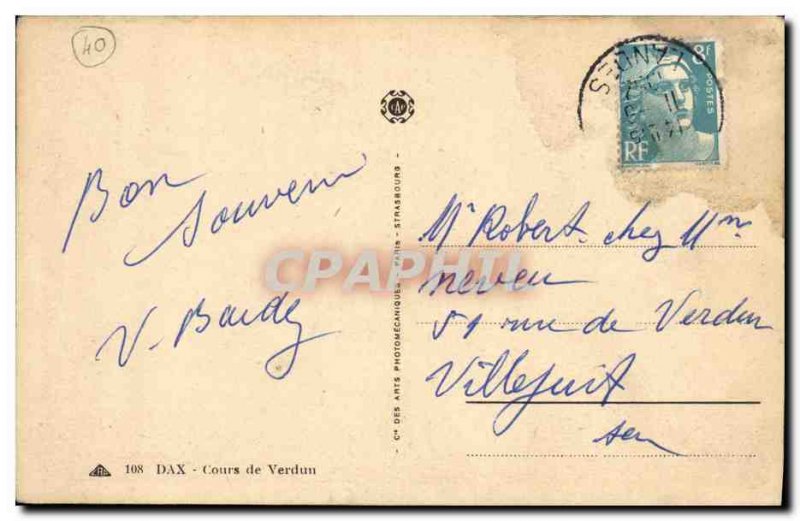 40
Bon
souvenir
V. Bardy
LANDES
8F
POSTES
RF
CAP
Cie DES ARTS PHOTOMÉCANIQUES - PARIS - STRASBOURG
Mr Robert. chez Mme
neveu
51 rue de Verdun
Villejuif
sen
CPAPHIL
108 DAX - Cours de Verdun